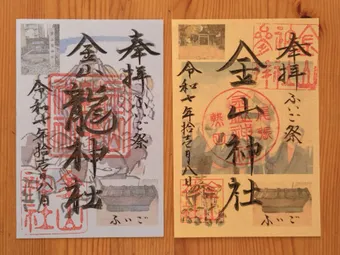 奉拝
ふいご祭
金龍神社
令和七年拾壱月八日
ふいご
奉拝
ふいご祭
金山神社
令和七年拾壱月八日
ふいご